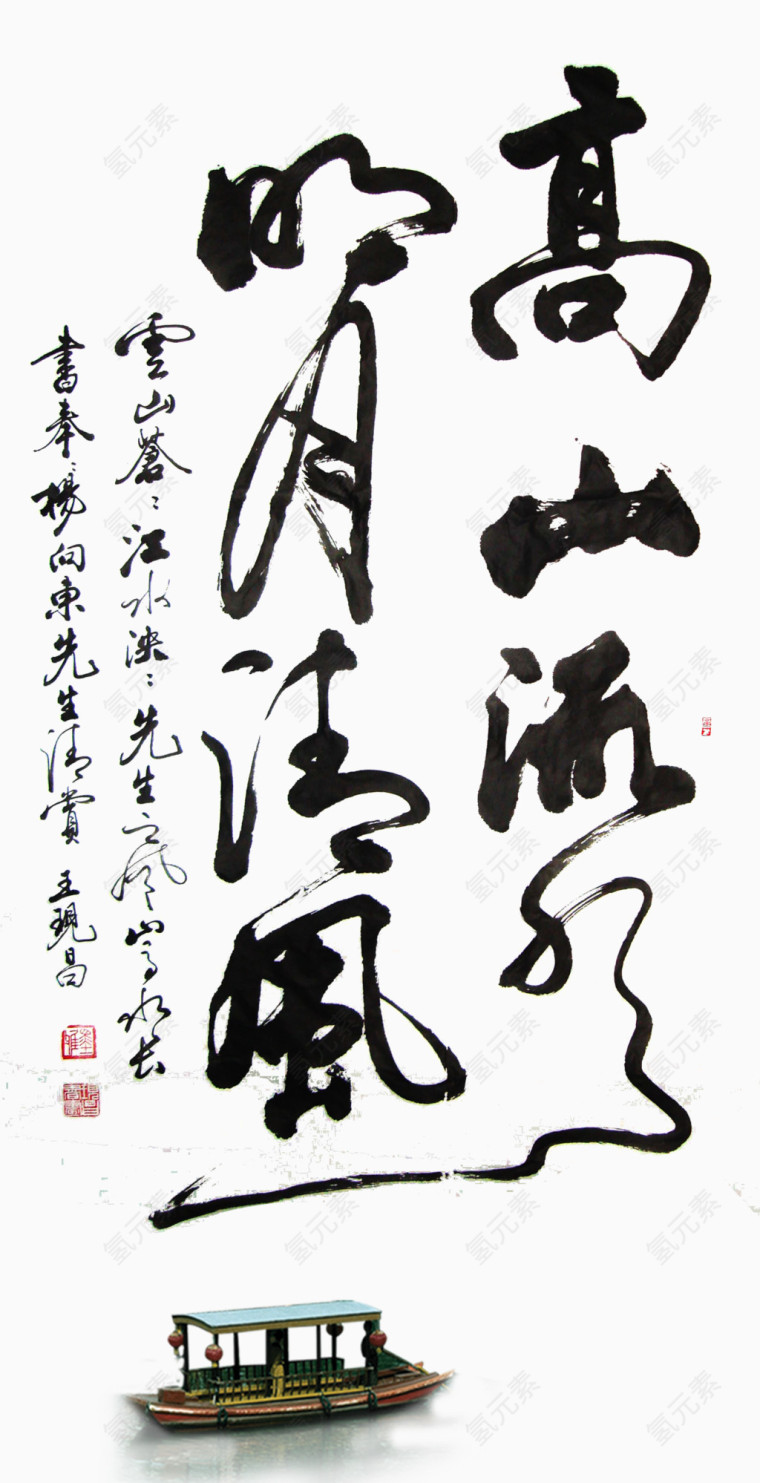 高山流水
明月清風
雲山蒼〻江水泱〻先生之風山高水長
書奉楊向東先生清賞 王現昌
氢元素